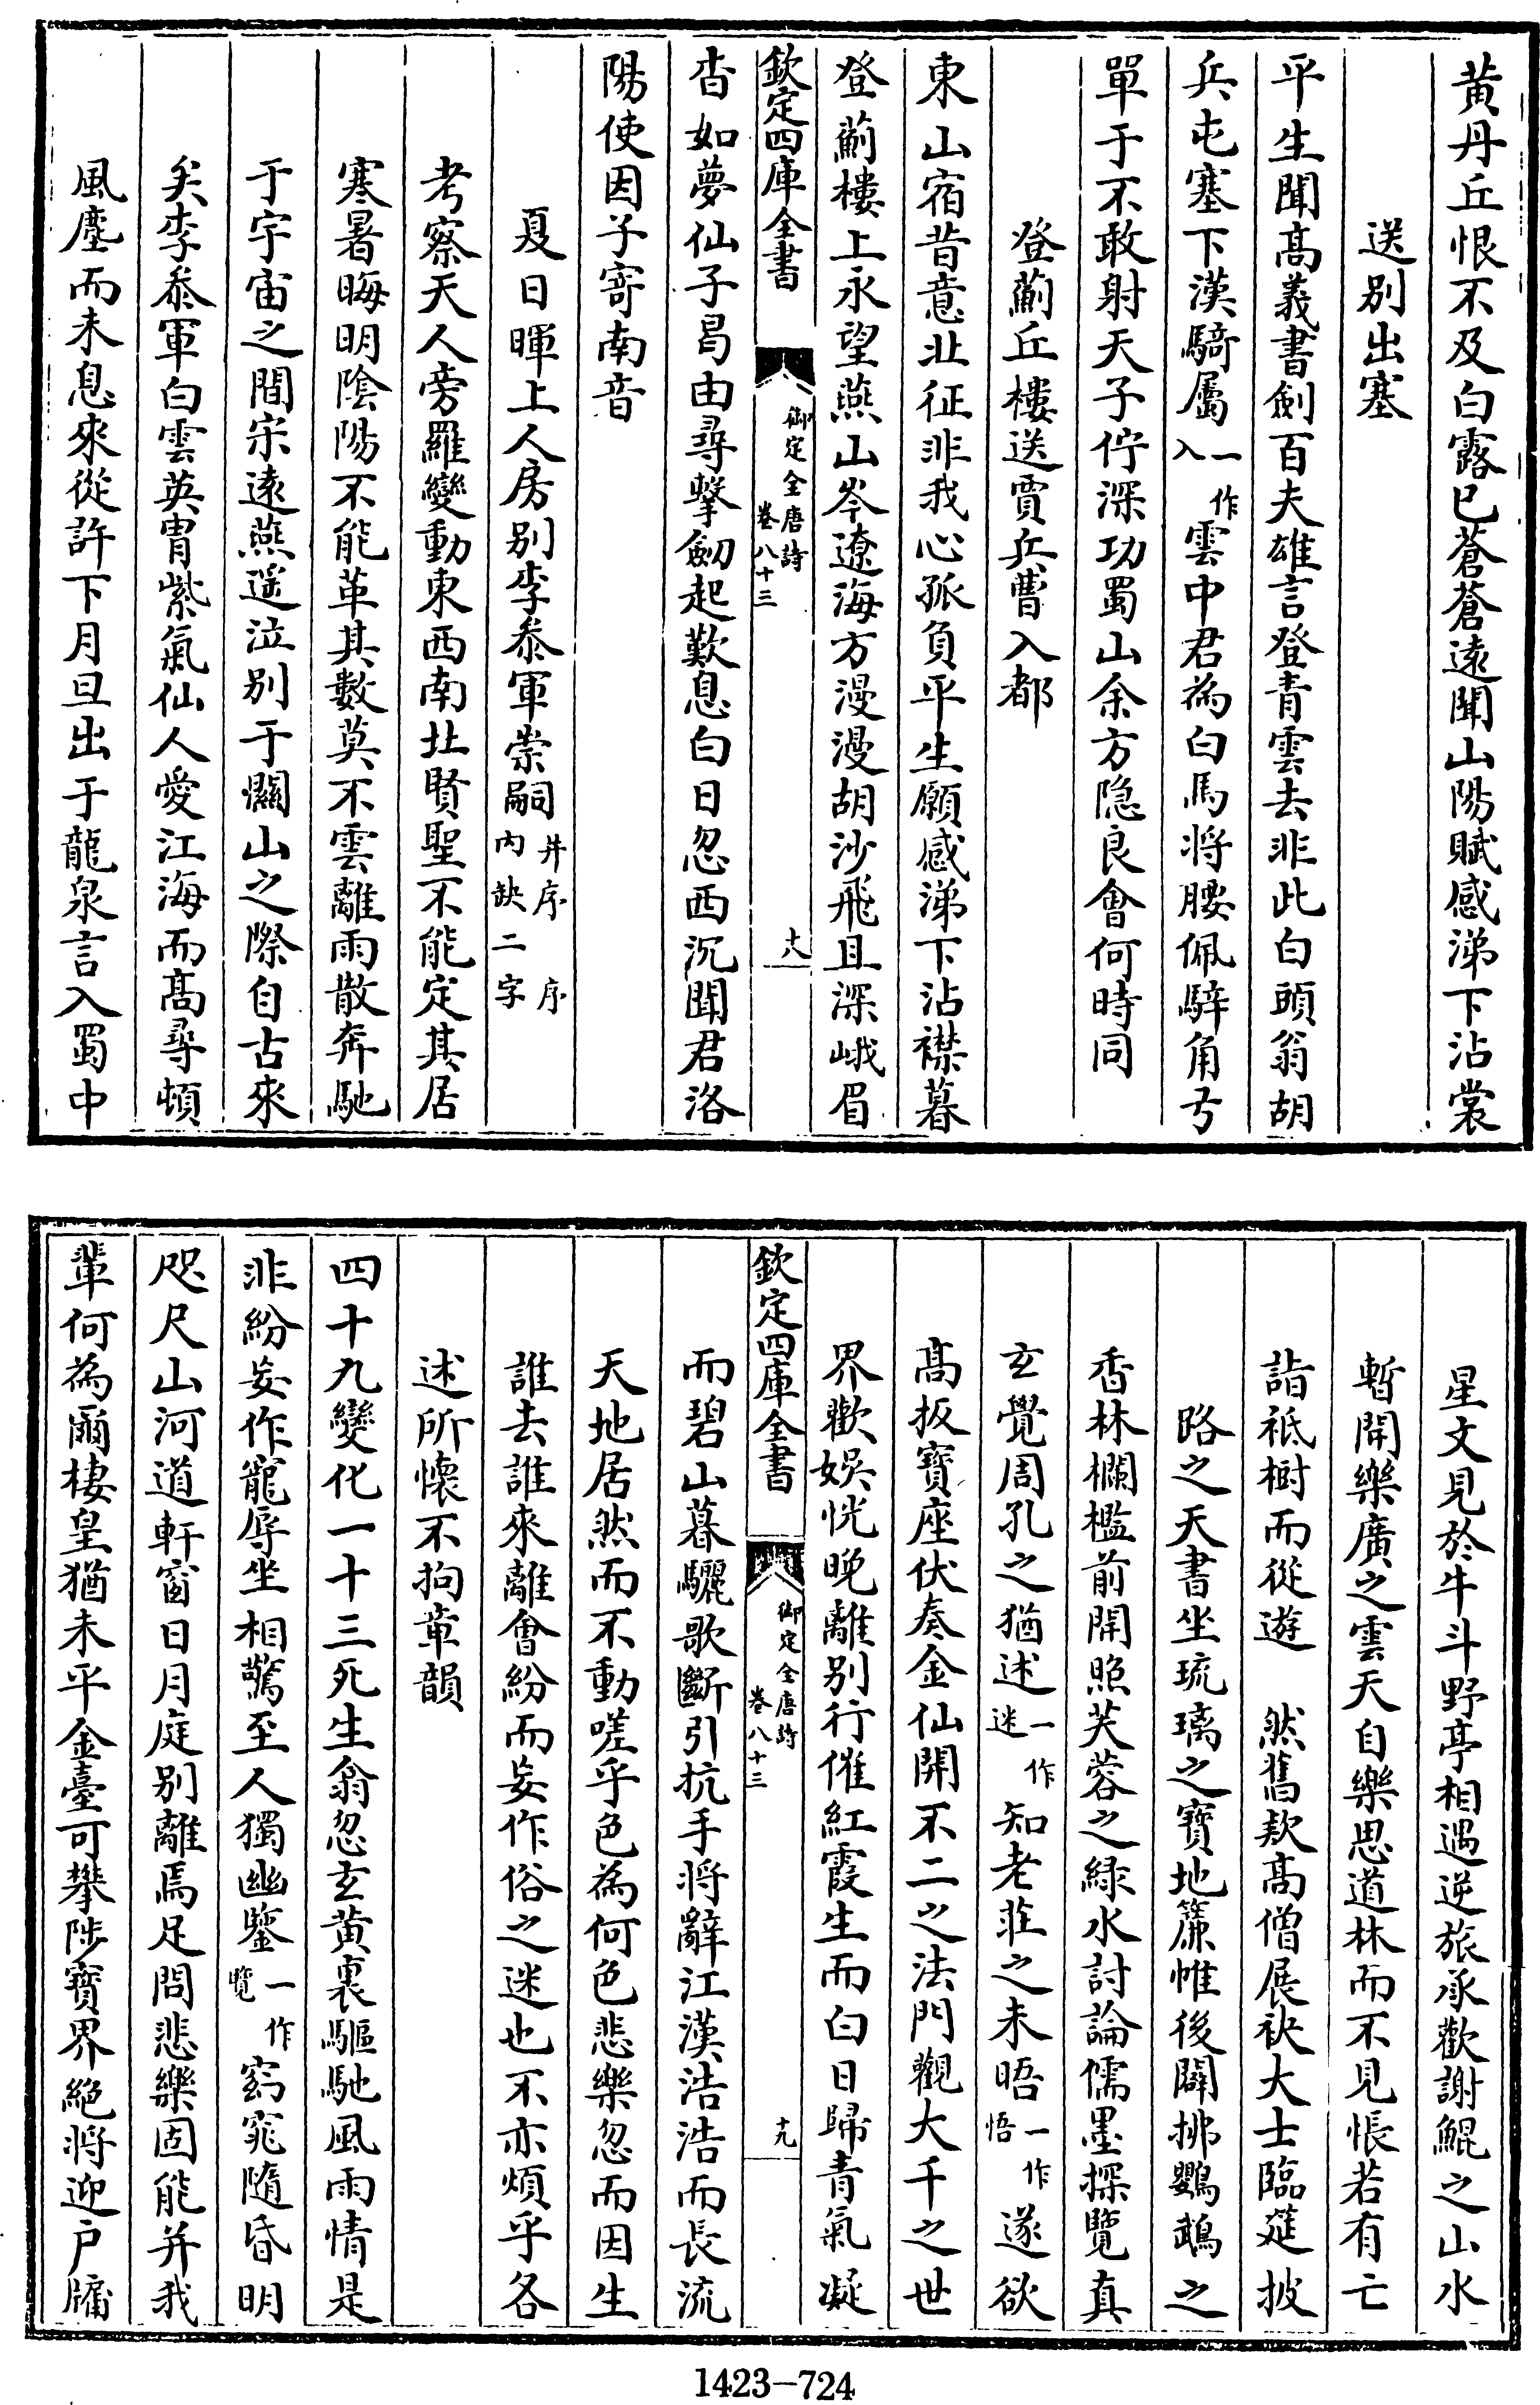 黃丹丘恨不及白露已蒼蒼遠聞山陽賦感涕下沾裳
送別出塞
平生聞髙義書劍百夫雄言登青雲去非此白頭翁胡
兵屯塞下漢騎屬一作入雲中君為白馬將腰佩騂角弓
單于不敢射天子佇深功蜀山余方隐良會何時同
登薊丘樓送賈兵曹入都
東山宿昔意北征非我心孤負平生願感涕下沾襟暮
登薊樓上永望燕山岑遼海方漫漫胡沙飛且深峨眉
欽定四庫全書
御定全唐詩
卷八十三
十八
杳如夢仙子曷由尋擊劒起歎息白日忽西沉聞君洛
陽使因子寄南音
夏日暉上人房別李叅軍崇嗣并序 序内缺二字
考察天人旁羅變動東西南北賢聖不能定其居
寒暑晦明陰陽不能革其數莫不雲離雨散奔馳
于宇宙之間宋逺燕遥泣別于關山之際自古來
矣李叅軍白雲英胄紫氣仙人愛江海而髙尋頓
風塵而未息來從許下月旦出于龍泉言入蜀中
星文見於牛斗野亭相遇逆旅承歡謝鯤之山水
暫開樂廣之雲天自樂思道林而不見悵若有亡
詣祇樹而從遊 然舊欵髙僧展袂大士臨筵披
路之天書坐琉璃之寶地簾帷後闢拂鸚鵡之
香林欄檻前開照芙蓉之緑水討論儒墨探覽真
玄覺周孔之猶述一作迷知老莊之未晤一作悟遂欲
髙扳寶座伏奏金仙開不二之法門觀大千之世
界歡娛恍晚離別行催紅霞生而白日歸青氣凝
欽定四庫全書
御定全唐詩
卷八十三
十九
而碧山暮驪歌斷引抗手將辭江漢浩浩而長流
天地居然而不動嗟乎色為何色悲樂忽而因生
誰去誰來離會紛而妄作俗之迷也不亦煩乎各
述所懷不拘章韻
四十九變化一十三死生翕忽玄黃裏驅馳風雨情是
非紛妄作寵辱坐相驚至人獨幽鑒一作覽窈窕隨昏明
咫尺山河道軒窗日月庭別離焉足問悲樂固能并我
輩何為爾棲皇猶未平金臺可攀陟寶界絕將迎户牖
1423-724